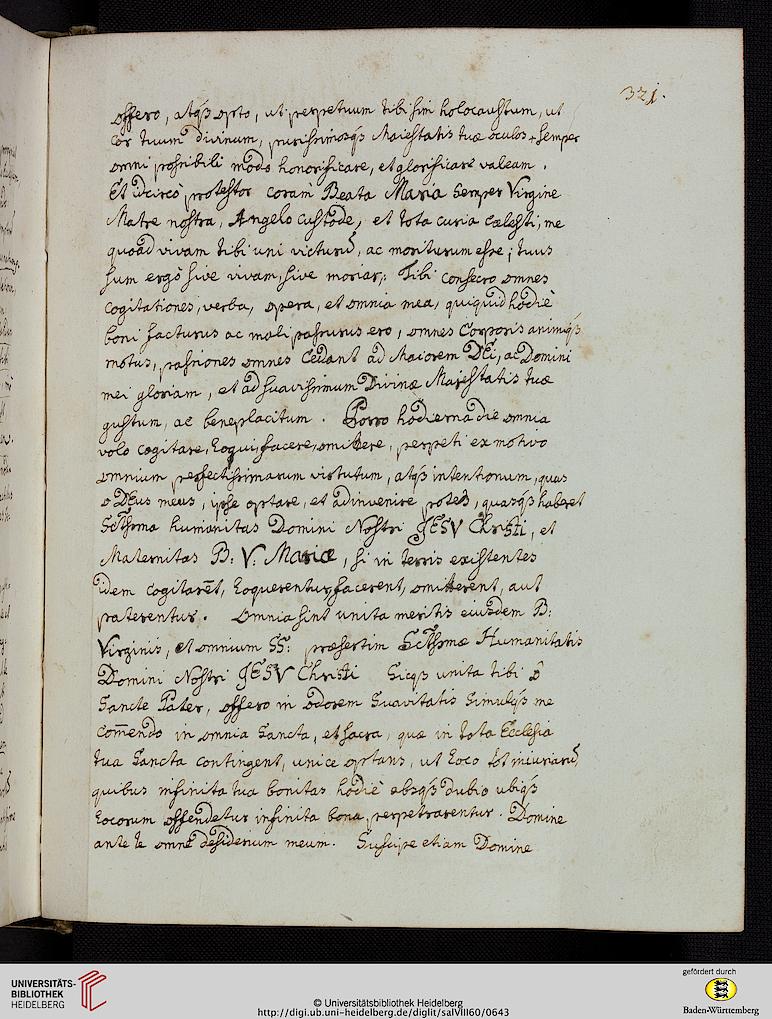 321.
offero, atq́ꝫ opto, ut perpetuum tibi sim holocaustum, ut
Cor tuum divinum, purissimosq́ꝫ Maiestatis tuæ oculos semper
omni possibili modo honorificare, et glorificare valeam.
Et idcircò protestor coram Beata Maria semper Virgine
Matre nostra, Angelo custode, et tota curia cælesti, me
quoad vivam tibi uni victurū, ac moriturum esse; tuus
sum ergò sive vivam, sive moriar: Tibi consecro omnes
cogitationes, verba, opera, et omnia mea, quiquid hodiè
boni facturus ac mali passurus ero, omnes Corporis animiq́ꝫ
motus, passiones omnes cedant ad Maiorem DEi, ac Domini
mei gloriam, et ad suavissimum Divinæ Majestatis tuæ
gustum, ac beneplacitum. Porro hodierna die omnia
volo cogitare, loqui, facere, omittere, perpeti ex motivo
omnium perfectissimarum virtutum, atq́ꝫ intentionum, quas
o DEus meus, ipse optare, et adinvenire potes, quasq́ꝫ haberet
SctÏssma humanitas Domini Nostri JESV Christi, et
Maternitas B: V: Mariæ, si in terris existentes
idem cogitarēt, loquerentur, facerent, omitterent, aut
paterentur. Omnia sint unita meritis eiusdem B:
Virginis, et omnium SS: præsertim SctÏssmæ Humanitatis
Domini Nostri JESV Christi Sicqꝫ unita tibi ô
Sancte Pater, offero in odorem suavitatis simulqꝫ me
com̄endo in omnia sancta, et sacra, quæ in tota Ecclesia
tua sancta contingent, unice optans, ut loco tot iniuriarū,
quibus infinita tua bonitas hodiè absqꝫ dubio ubiqꝫ
locorum offendetur infinita bona perpetrarentur. Domine
ante te omne desiderium meum. Suscipe etiam Domine
UNIVERSITÄTS-
BIBLIOTHEK
HEIDELBERG
© Universitätsbibliothek Heidelberg
http://digi.ub.uni-heidelberg.de/diglit/salVIII60/0643
gefördert durch
Baden-Württemberg